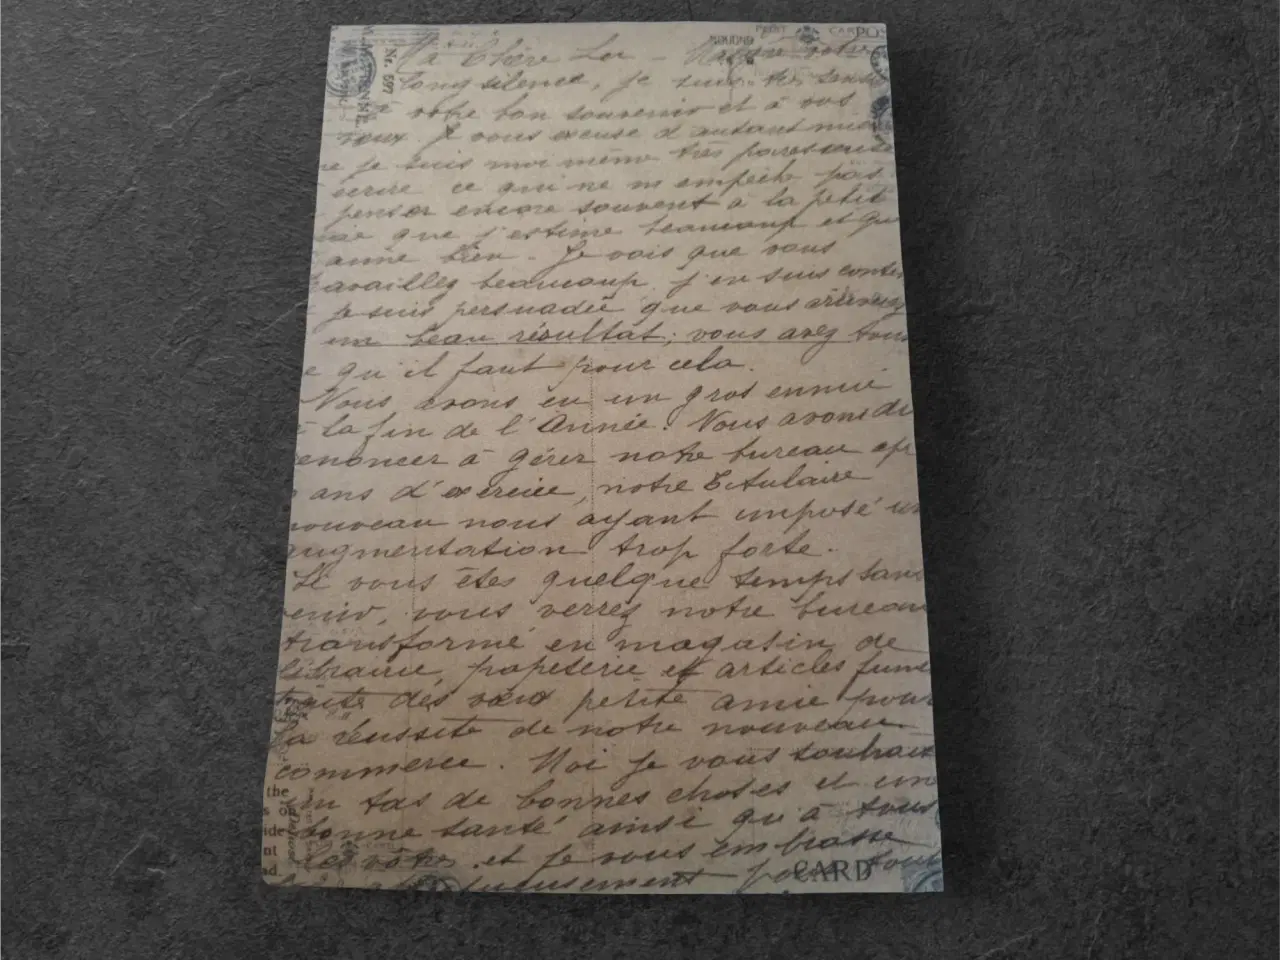 POST CARD POS
Nr. 597
Ma Chère Lu - Malgré votre
long silence, je suis très sensi
à votre bon souvenir et à vos
voeux. Je vous excuse d'autant mieu
e je suis moi même très paresseuse
écrire ce qui ne m'empêche pas
penser encore souvent à la petite
mie que j'estime beaucoup et que
aime bien. Je vois que vous
availlez beaucoup j'en suis conten
Je suis persuadée que vous arriverez
un beau résultat; vous avez tous
e qu'il faut pour cela.
Nous avons eu un gros ennui
à la fin de l'Année. Nous avons dû
enoncer à gérer notre bureau apr
ans d'exercice, notre titulaire
nouveau nous ayant imposé un
augmentation trop forte.
Si vous êtes quelque temps sans
venir, vous verrez notre bureau
transformé en magasin de
librairie, papeterie et articles fume
faite des voeux petite amie pour
la réussite de notre nouveau
commerce. Moi je vous souhaite
un tas de bonnes choses et une
bonne santé ainsi qu'à tous
les vôtres et je vous embrasse
pour tout
the
ide
nt
ad
CARD